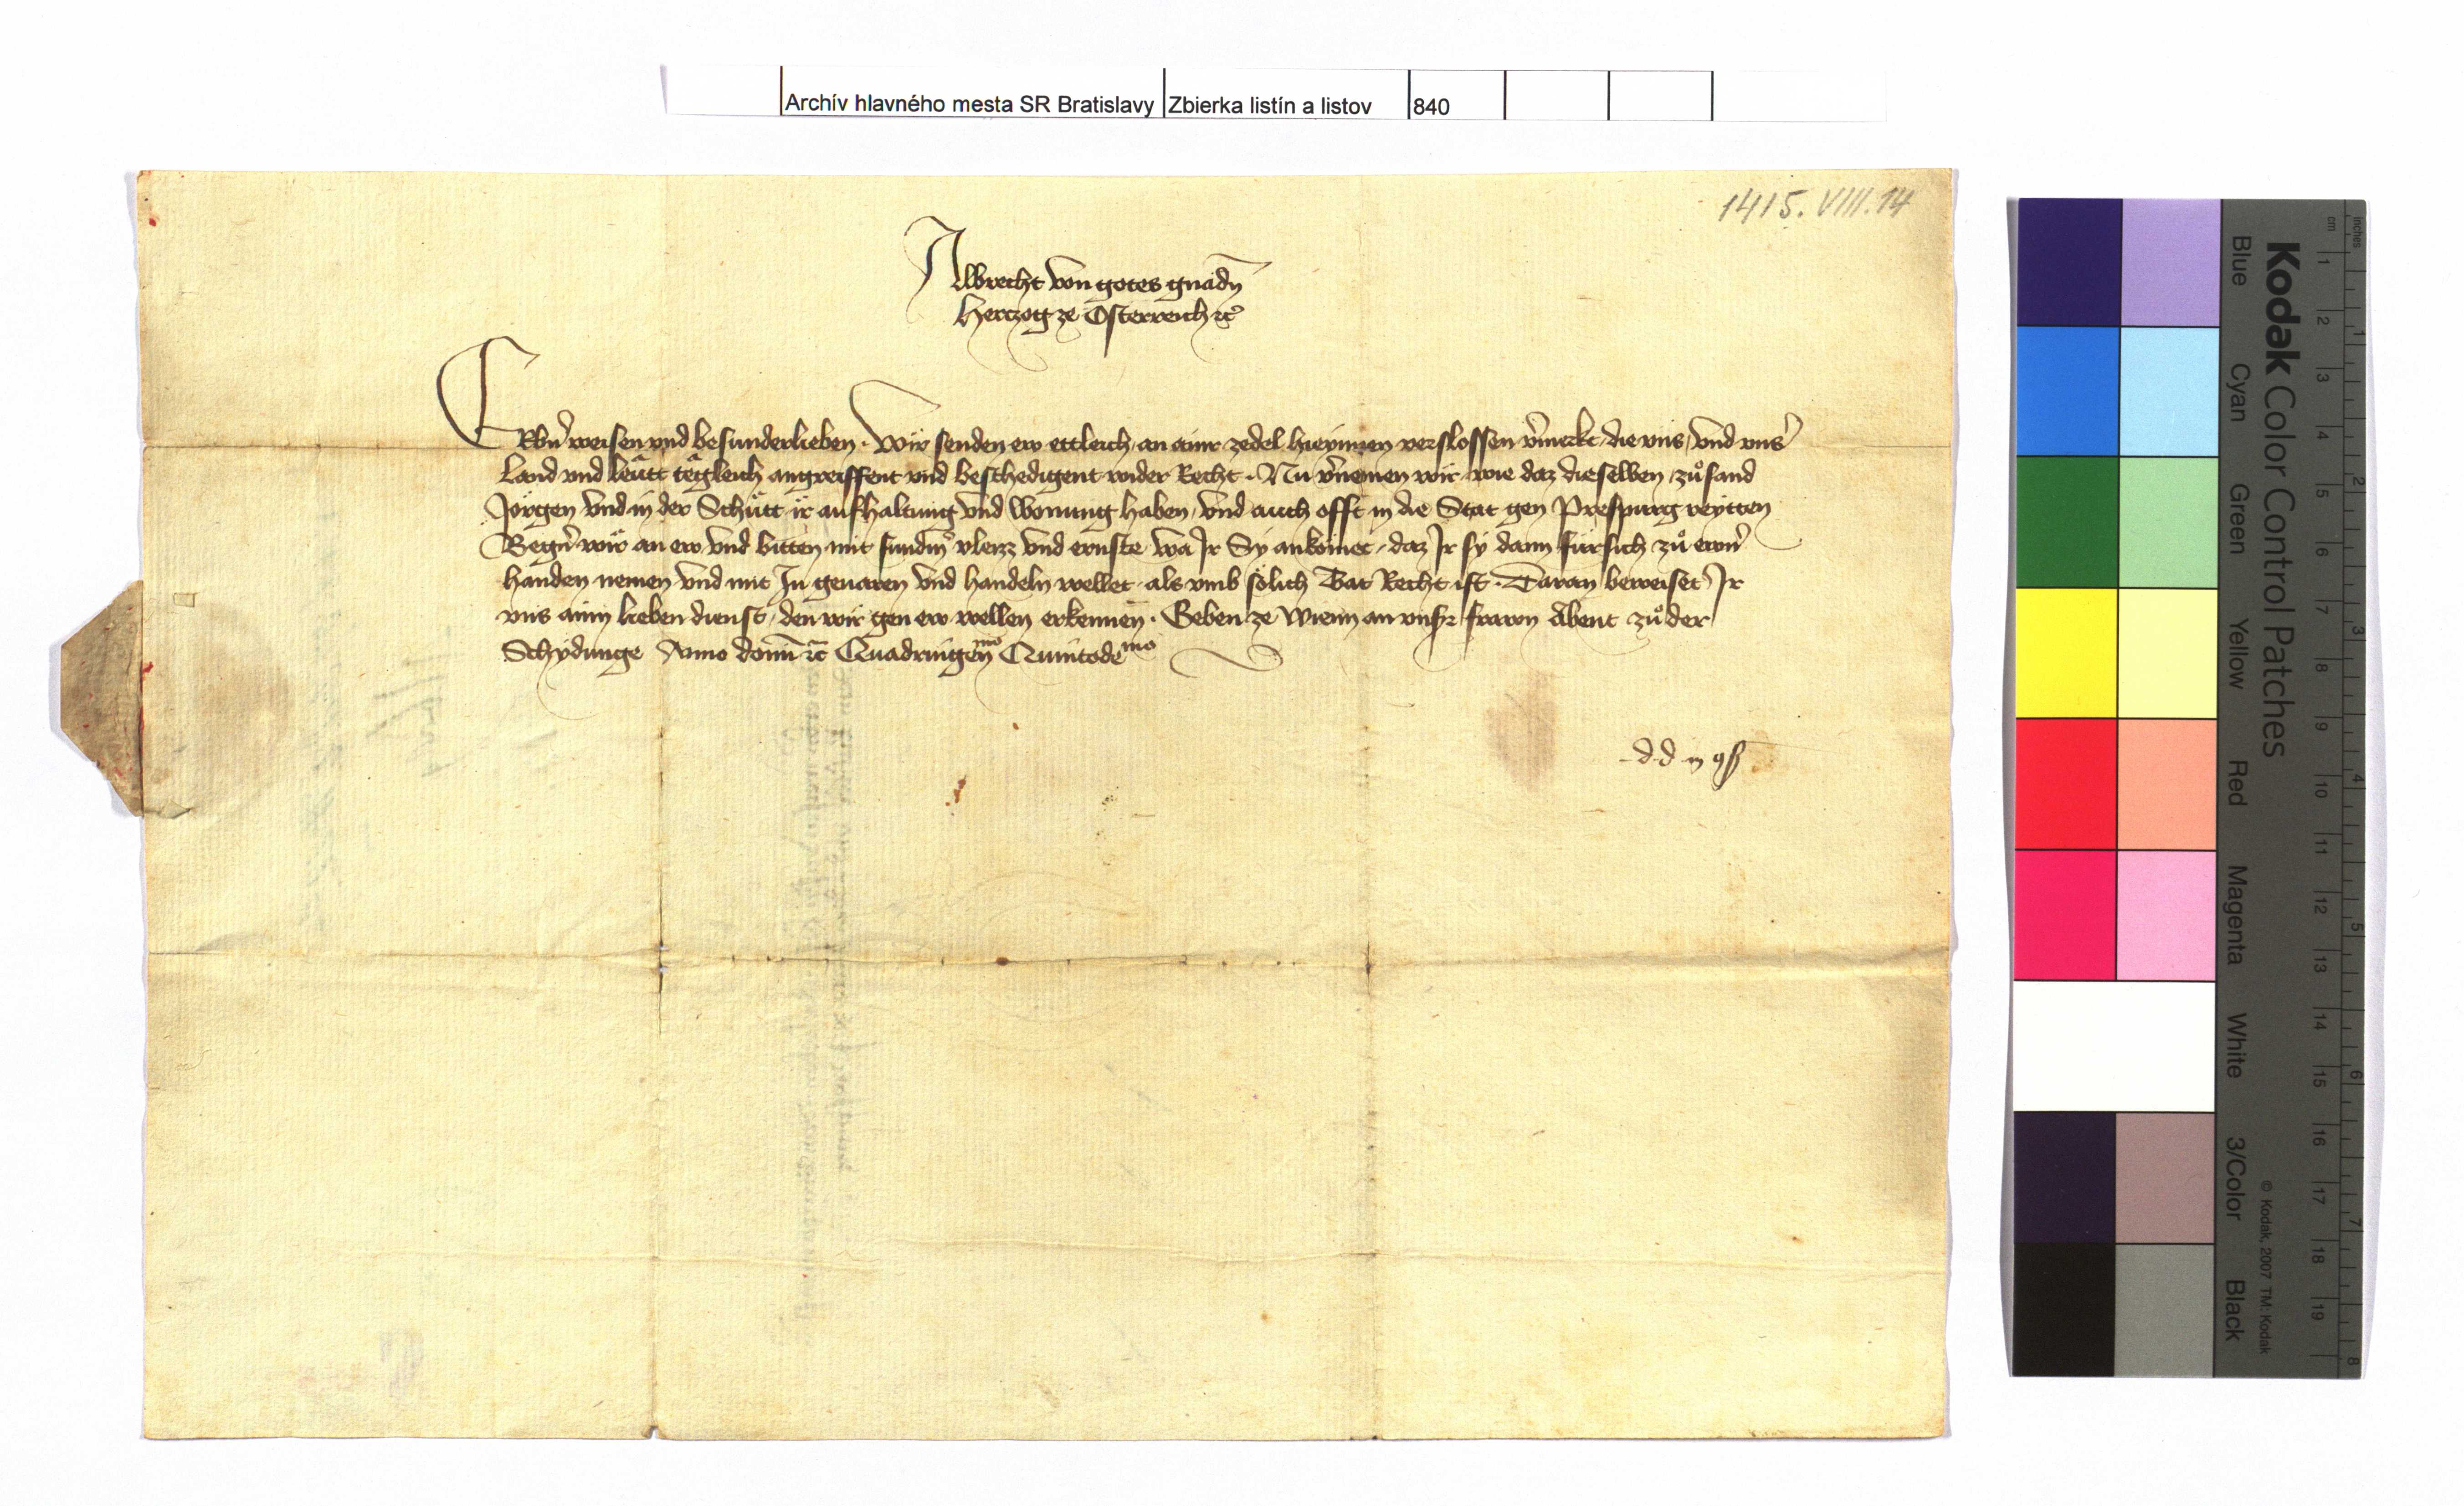 Archív hlavného mesta SR Bratislavy Zbierka listín a listov 840
1415. VIII. 14
Albrecht von gotes gnadn̄
Herczog ze Österreich ꝛc̄
Erbn̄ weisen vnd besunderlieben. Wir senden ew ettleich, an ainr zedel hieynnen verslossen v̄merkt, die vns, vnd vnsʾ
Land vnd leutt tegleich angreiffent vnd beschedigent wider Recht. Nu v̄nemen wir, wie daz dieselben zů sand
Jörgen vnd in der Schütt ir aufhaltung vnd wonung haben, vnd auch offt in die Stat gen Prespurg reytten
Begn̄ wir an ew vnd bitten mit sundm̄ vleizz vnd ernste, wa Ir Sy ankömet, daz Ir sy dann für sich zů ewrn̄
handen nemen vnd mit In geuaren vnd handeln wellet, als vmb sölich Tat Recht ist. Daran beweiset Ir
vns ainn lieben dienst, den wir gen ew wellen erkennen. Geben ze Wienn an vnsr frawn Abent zů der
Schydunge Anno domī ꝛc̄ Quadringenͫͦ Quintodeͫͦ
d. d. in 9ß
Kodak Color Control Patches
Blue Cyan Green Yellow Red Magenta White 3/Color Black
© Kodak, 2007 TM: Kodak
inches 1 2 3 4 5 6 7 8
cm 1 2 3 4 5 6 7 8 9 10 11 12 13 14 15 16 17 18 19